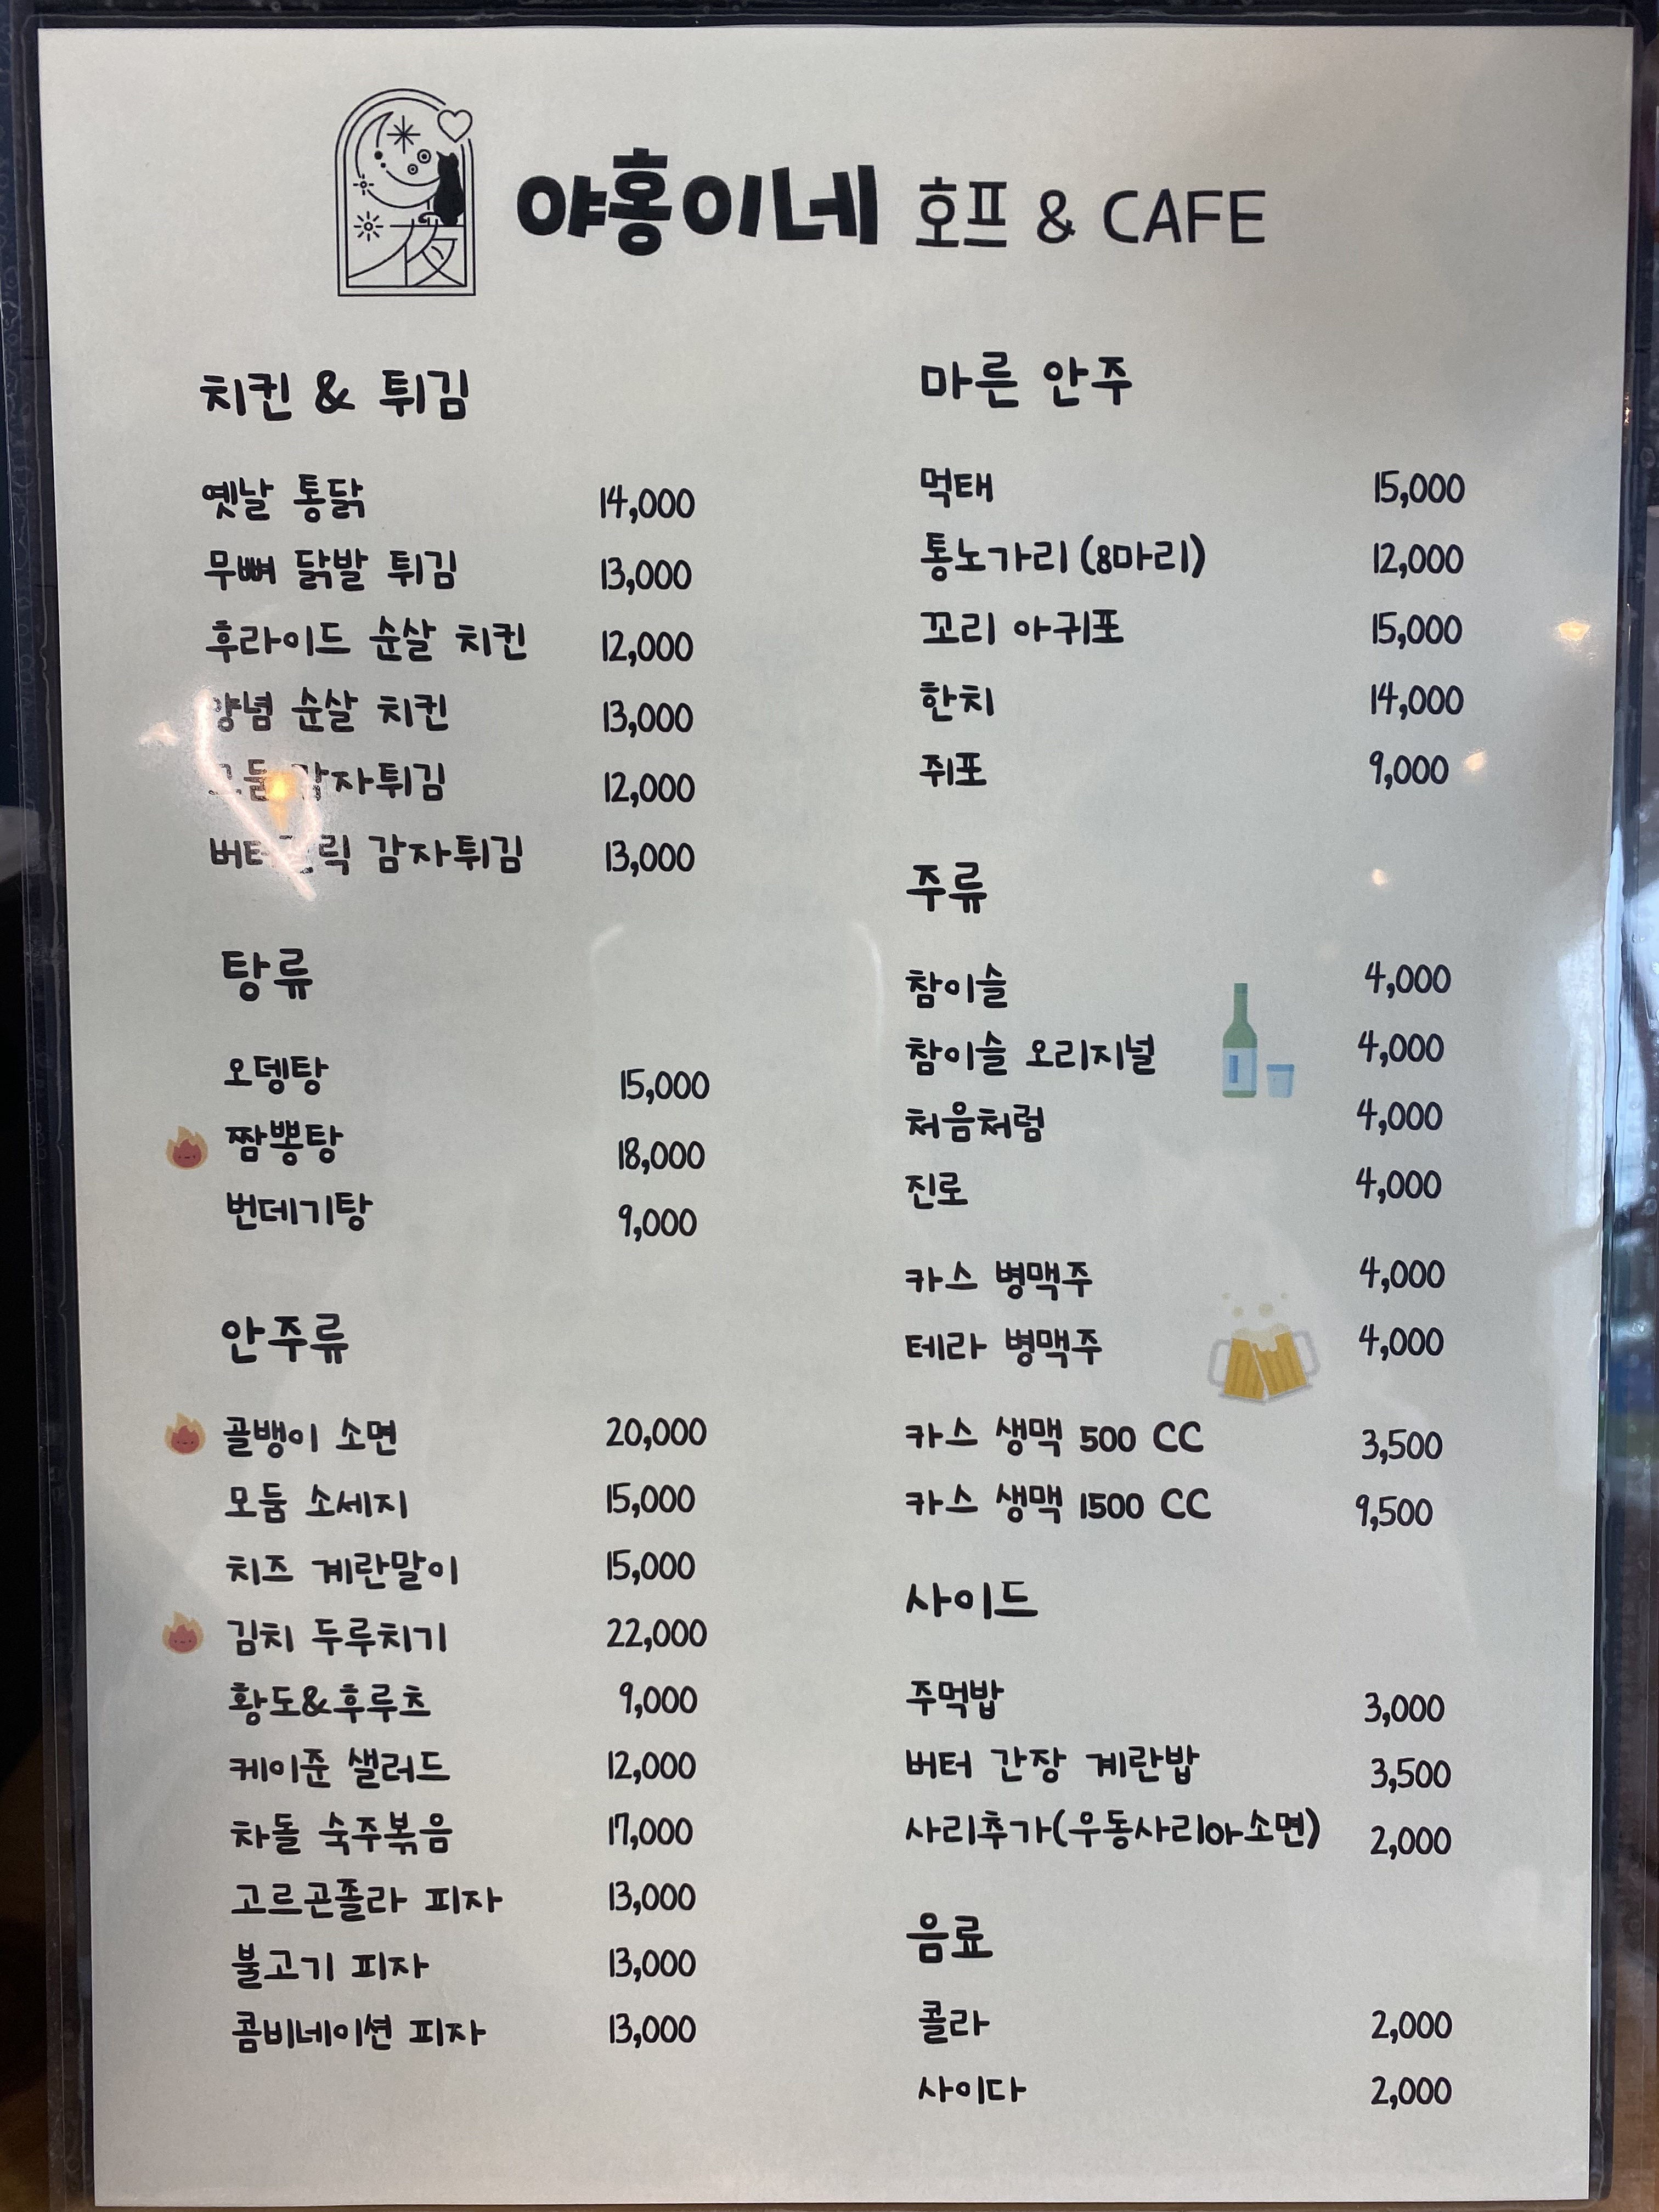 夜
야홍이네 호프 & CAFE
치킨 & 튀김
옛날 통닭 14,000
무뼈 닭발 튀김 13,000
후라이드 순살 치킨 12,000
양념 순살 치킨 13,000
모둠 감자튀김 12,000
버터갈릭 감자튀김 13,000
탕류
오뎅탕 15,000
짬뽕탕 18,000
번데기탕 9,000
안주류
골뱅이 소면 20,000
모둠 소세지 15,000
치즈 계란말이 15,000
김치 두루치기 22,000
황도&후루츠 9,000
케이준 샐러드 12,000
차돌 숙주볶음 17,000
고르곤졸라 피자 13,000
불고기 피자 13,000
콤비네이션 피자 13,000
마른 안주
먹태 15,000
통노가리 (8마리) 12,000
꼬리 아귀포 15,000
한치 14,000
쥐포 9,000
주류
참이슬 4,000
참이슬 오리지널 4,000
처음처럼 4,000
진로 4,000
카스 병맥주 4,000
테라 병맥주 4,000
카스 생맥 500 CC 3,500
카스 생맥 1500 CC 9,500
사이드
주먹밥 3,000
버터 간장 계란밥 3,500
사리추가(우동사리or소면) 2,000
음료
콜라 2,000
사이다 2,000